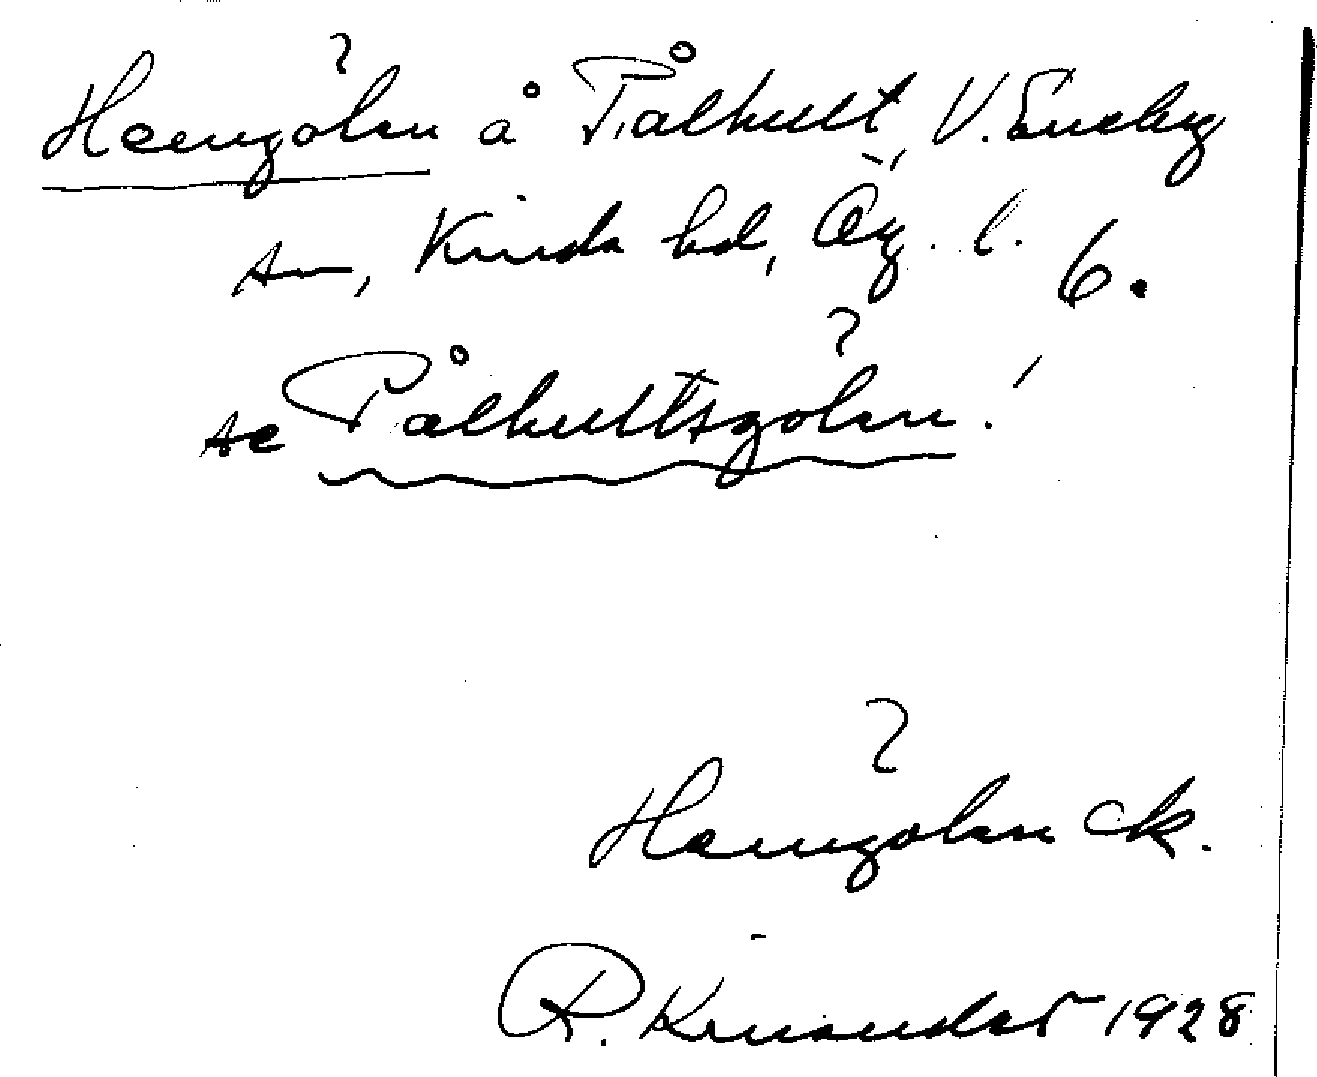 Hemgölen å Pålhult, V. Eneby
sn, Kinda hd, Ög. l. 6.
se Pålhultsgölen!
Hemgölen ek.
R. Kinander 1928